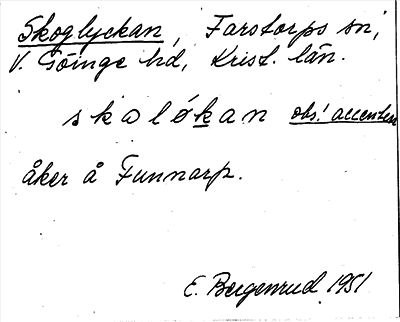 Skoglyckan, Farstorps sn,
V. Göinge hd, Krist. län.
skalókan obs! accenten
åker å Funnarp.
E. Bergenrud 1951